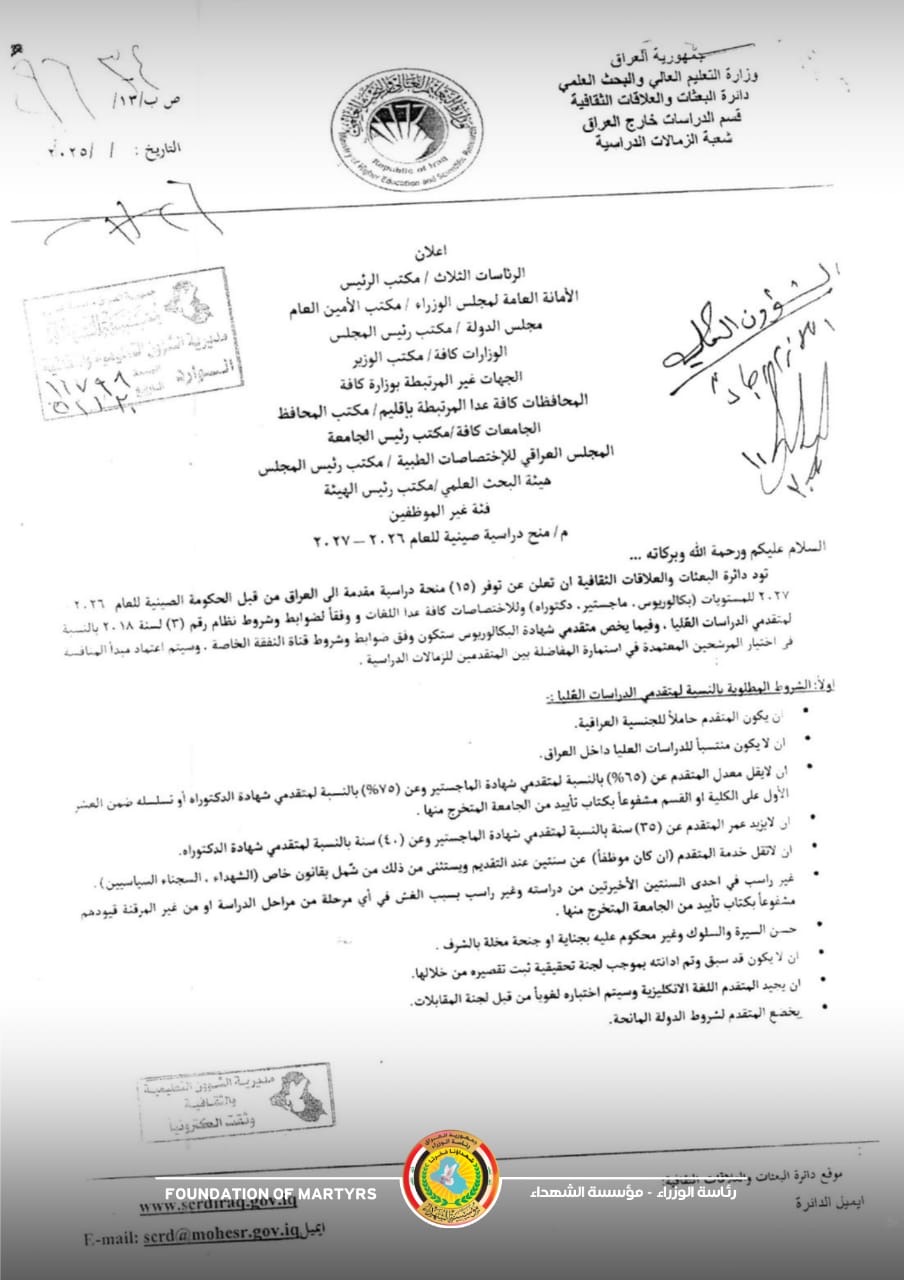 جمهورية العراق
وزارة التعليم العالي والبحث العلمي
دائرة البعثات والعلاقات الثقافية
قسم الدراسات خارج العراق
شعبة الزمالات الدراسية
Republic of Iraq
Ministry of Higher Education and Scientific Research
ص ب/١٣/
التاريخ: / /٢٠٢٥
اعلان
الرئاسات الثلاث / مكتب الرئيس
الأمانة العامة لمجلس الوزراء / مكتب الأمين العام
مجلس الدولة / مكتب رئيس المجلس
الوزارات كافة/ مكتب الوزير
الجهات غير المرتبطة بوزارة كافة
المحافظات كافة عدا المرتبطة بإقليم/ مكتب المحافظ
الجامعات كافة/مكتب رئيس الجامعة
المجلس العراقي للإختصاصات الطبية / مكتب رئيس المجلس
هيئة البحث العلمي/مكتب رئيس الهيئة
فئة غير الموظفين
م/ منح دراسية صينية للعام ٢٠٢٦ – ٢٠٢٧
السلام عليكم ورحمة الله وبركاته ...
تود دائرة البعثات والعلاقات الثقافية ان تعلن عن توفر (١٥) منحة دراسية مقدمة الى العراق من قبل الحكومة الصينية للعام ٢٠٢٦ -
٢٠٢٧ للمستويات (بكالوريوس، ماجستير، دكتوراه) وللاختصاصات كافة عدا اللغات و وفقاً لضوابط وشروط نظام رقم (٣) لسنة ٢٠١٨ بالنسبة
لمتقدمي الدراسات العُليا ، وفيما يخص متقدمي شهادة البكالوريوس ستكون وفق ضوابط وشروط قناة النفقة الخاصة ، وسيتم اعتماد مبدأ المنافسة
في اختيار المرشحين المعتمدة في استمارة المفاضلة بين المتقدمين للزمالات الدراسية .
اولاً: الشروط المطلوبة بالنسبة لمتقدمي الدراسات العُليا :-
• ان يكون المتقدم حاملاً للجنسية العراقية.
• ان لا يكون منتسباً للدراسات العليا داخل العراق.
• ان لايقل معدل المتقدم عن (٦٥%) بالنسبة لمتقدمي شهادة الماجستير وعن (٧٥%) بالنسبة لمتقدمي شهادة الدكتوراه أو تسلسله ضمن العشر
الأول على الكلية او القسم مشفوعاً بكتاب تأييد من الجامعة المتخرج منها .
• ان لايزيد عمر المتقدم عن (٣٥) سنة بالنسبة لمتقدمي شهادة الماجستير وعن (٤٠) سنة بالنسبة لمتقدمي شهادة الدكتوراه.
• ان لاتقل خدمة المتقدم (ان كان موظفاً) عن سنتين عند التقديم ويستثنى من ذلك من شُمل بقانون خاص (الشهداء ، السجناء السياسيين) .
• غير راسب في احدى السنتين الأخيرتين من دراسته وغير راسب بسبب الغش في أي مرحلة من مراحل الدراسة او من غير المرقنة قيودهم
مشفوعاً بكتاب تأييد من الجامعة المتخرج منها .
• حسن السيرة والسلوك وغير محكوم عليه بجناية او جنحة مخلة بالشرف .
• ان لا يكون قد سبق وتم ادانته بموجب لجنة تحقيقية ثبت تقصيره من خلالها.
• ان يجيد المتقدم اللغة الانكليزية وسيتم اختباره لغوياً من قبل لجنة المقابلات.
• يخضع المتقدم لشروط الدولة المانحة.
مديرية الشؤون التعليمية
والثقافية
وثقت الكترونيا
موقع دائرة البعثات والعلاقات الثقافية:
www.scrdiraq.gov.iq
ايميل الدائرة
ايميل E-mail: scrd@mohesr.gov.iq
رئاسة الوزراء - مؤسسة الشهداء
FOUNDATION OF MARTYRS
جمهورية العراق
رئاسة الوزراء
مؤسسة الشهداء